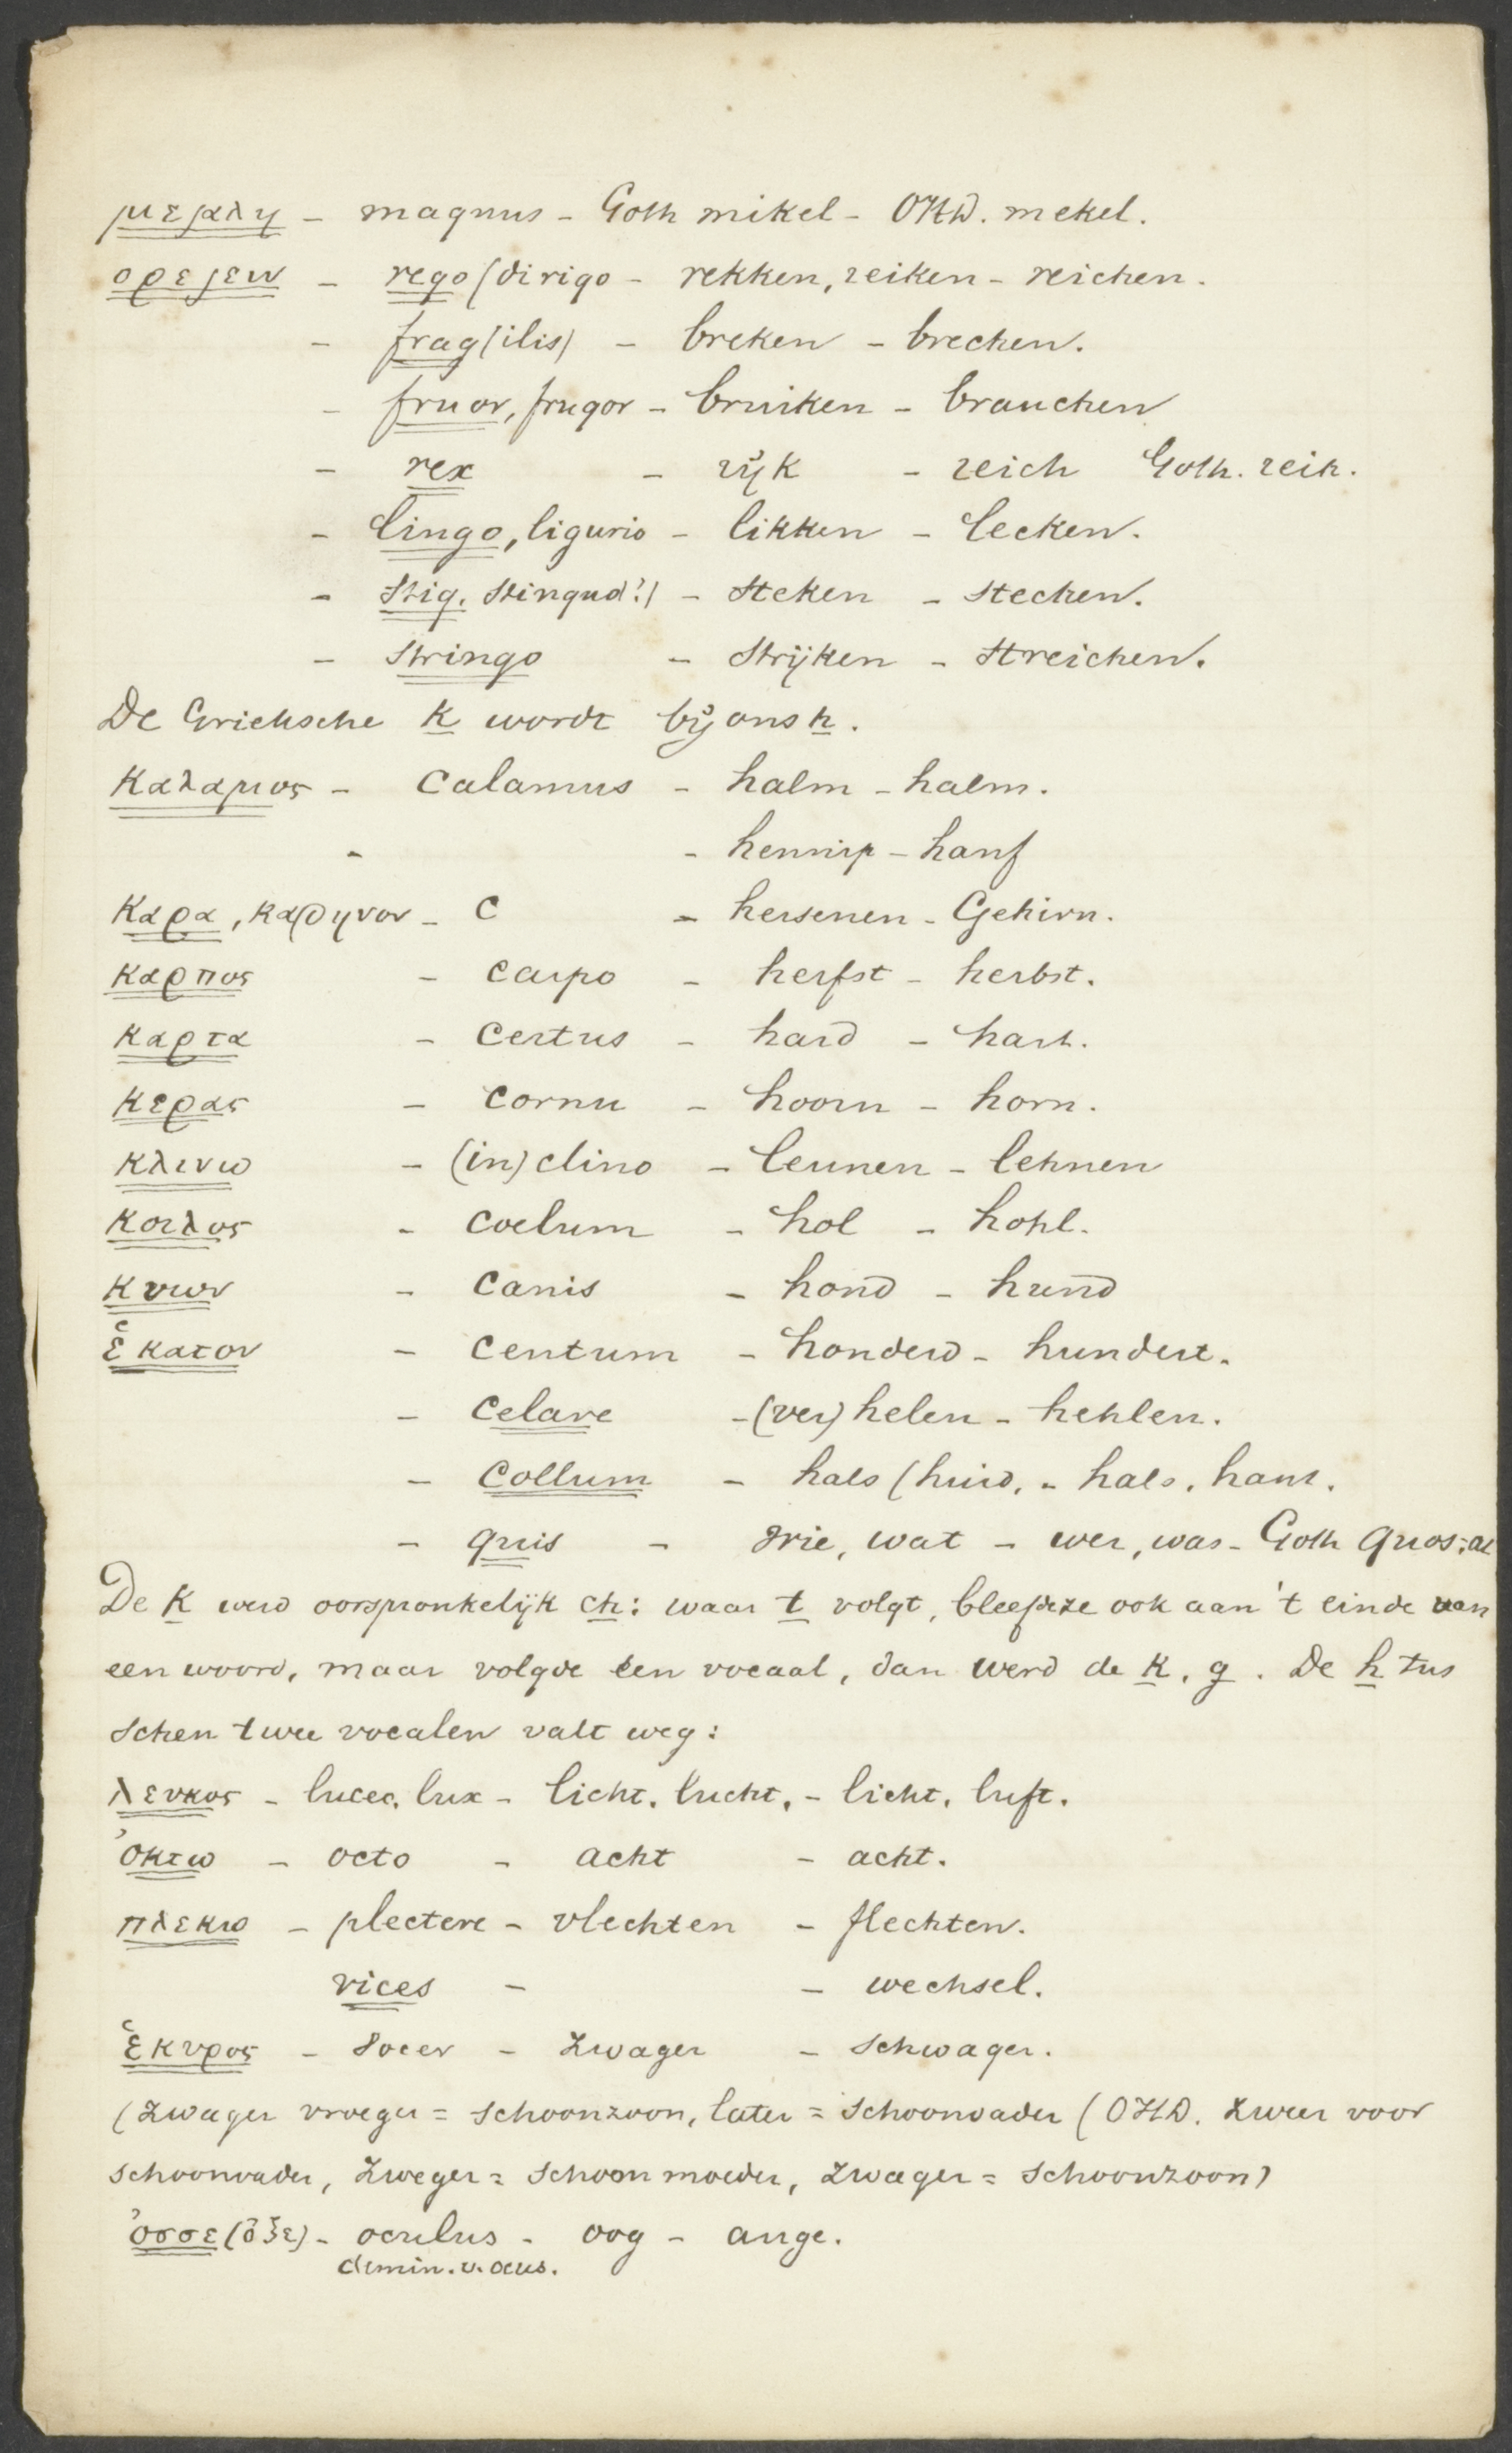 μεγαλη - magnus - Goth mikel - OHD. mekel.
ορεγειν - rego (dirigo - rekken, reiken - reichen.
- frag(ilis) - breken - brechen.
- fruor, frugor - bruiken - brauchen
- rex - rijk - reich Goth. reik.
- lingo, ligurio - likken - lecken.
- Stig. stinguo?) - steken - stechen.
- Stringo - strijken - streichen.
De Grieksche k wordt bij ons h.
καλαμος - calamus - halm - halm.
- - hennip - hanf
καρα, καρηνον - c - hersenen - Gehirn.
καρπος - carpo - herfst - herbst.
καρτα - certus - hard - hart.
κερας - cornu - hoorn - horn.
κλινω - (in)clino - leunen - lehnen
κοιλος - coelum - hol - hohl.
κυων - canis - hond - hund
ἑκατον - centum - honderd - hundert.
- celare - (ver)helen - hehlen.
- collum - hals (huid, - hals, haut.
- quis - wie, wat - wer, was - Goth quos:
De k werd oorspronkelijk ch: waar t volgt, bleef deze ook aan 't einde van
een woord, maar volgde een vocaal, dan werd de k, g. De h tus
schen twee vocalen valt weg:
λευκος - luceo, lux - licht, lucht, - licht, luft.
ὀκτω - octo - acht - acht.
πλεκω - plectere - vlechten - flechten.
vices - - wechsel.
ἑκυρος - socer - zwager - schwager.
(zwager vroeger = schoonzoon, later = schoonvader (OHD. zweer voor
schoonvader, zweger = schoonmoeder, zwager = schoonzoon)
ὀσσε (ὀξε) - oculus - oog - auge.
dimin. v. ocus.